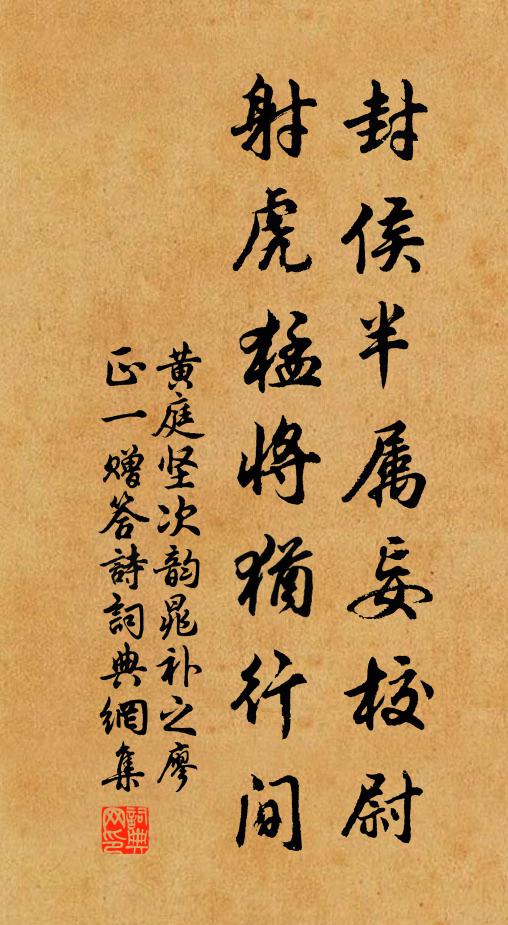 封侯半属妄校尉
射虎猛将犹行间
黄庭坚次韵晁补之廖
正一赠答詩詞典網集
詞典网印